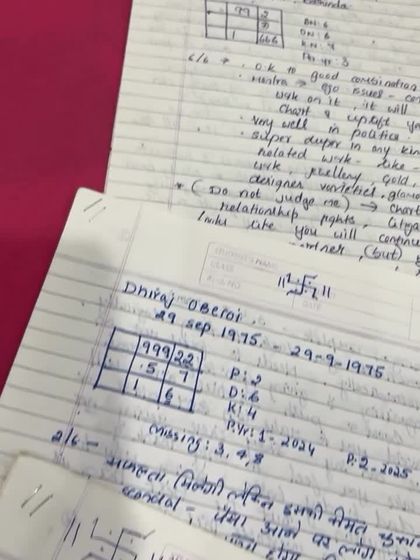 99 2
BN: 6
1 666
6/6 → O.K to good combination
Mantra → ego issues - con
work on it, it will
chart & uplift yo
very well in politics.
super duper in any kin
related work - like -
work, jewellery, gold
designer varieties, glamo
* (Do not judge me) → chart
relationship fights,
looks like you will continue
partner, (but)
CLASS
DATE
Dhiraj Oberoi
29 sep. 1975. - 29-9-1975
999 22
5 7
1 6
P: 2
D: 6
K: 4
P.Yr: 1 - 2024
P: 2 - 2025
Missing: 3, 4, 8
2/6 - सफलता मिलेगी लेकिन इसकी कीमत
scandal - पैसा आने पर